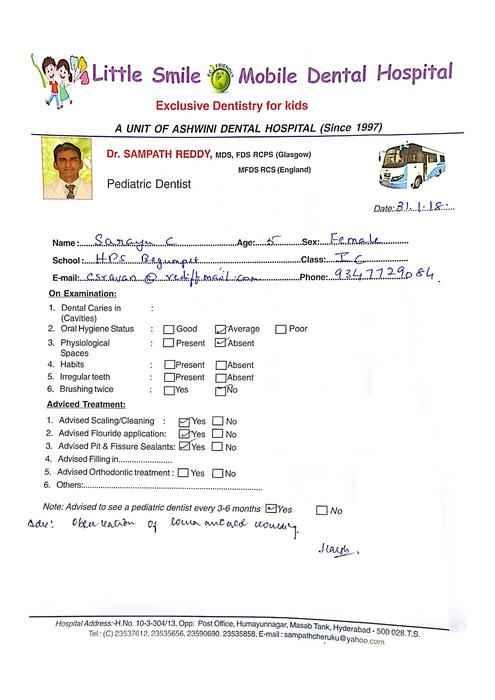 Little Smile Mobile Dental Hospital
Exclusive Dentistry for kids
A UNIT OF ASHWINI DENTAL HOSPITAL (Since 1997)
Dr. SAMPATH REDDY, MDS, FDS RCPS (Glasgow)
MFDS RCS (England)
Pediatric Dentist
Date: 31.1.18.
Name: Sarayu C Age: 5 Sex: Female
School: HPS Begumpet Class: I C
E-mail: csravan@rediffmail.com Phone: 9347729084
On Examination:
1. Dental Caries in :
(Cavities)
2. Oral Hygiene Status : Good Average Poor
3. Physiological : Present Absent
Spaces
4. Habits : Present Absent
5. Irregular teeth : Present Absent
6. Brushing twice : Yes No
Adviced Treatment:
1. Advised Scaling/Cleaning : Yes No
2. Advised Flouride application: Yes No
3. Advised Pit & Fissure Sealants: Yes No
4. Advised Filling in
5. Advised Orthodontic treatment : Yes No
6. Others:
Note: Advised to see a pediatric dentist every 3-6 months Yes No
Adv: Observation of lower crowding.
Hospital Address:-H.No. 10-3-304/13, Opp: Post Office, Humayunnagar, Masab Tank, Hyderabad - 500 028.T.S.
Tel : (C) 23537612, 23535656, 23590690, 23535858, E-mail : sampathcheruku@yahoo.com